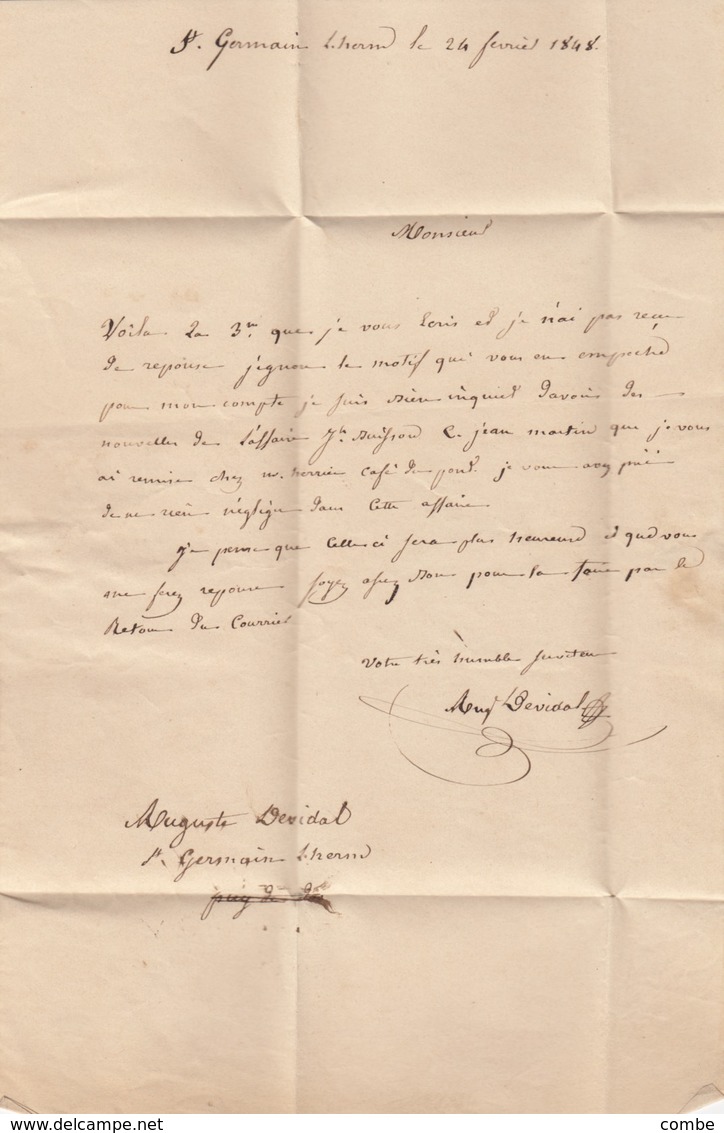 St. Germain Lherm le 24 fevrier 1848.
Monsieur
Voila la 3me que je vous Ecris et je n'ai pas recu
de reponse j'ignore le motif qui vous en empeche
pour mon compte je suis bien inquiet davoir des
nouvelles de L'affaire Jh Buisson C. jean martin que je vous
ai remise chez m. herrier café du pont. je vous avez prié
de ne rien négliger dans Cette affaire
Je pense que Celle ci sera plus heureuse et que vous
me ferez reponse soyez assez bon pour la faire par le
Retour du Courrier
Votre très humble serviteur
Aug Devidal
Auguste Devidal
St. Germain Lherm
puy de dome
www.delcampe.net
combe